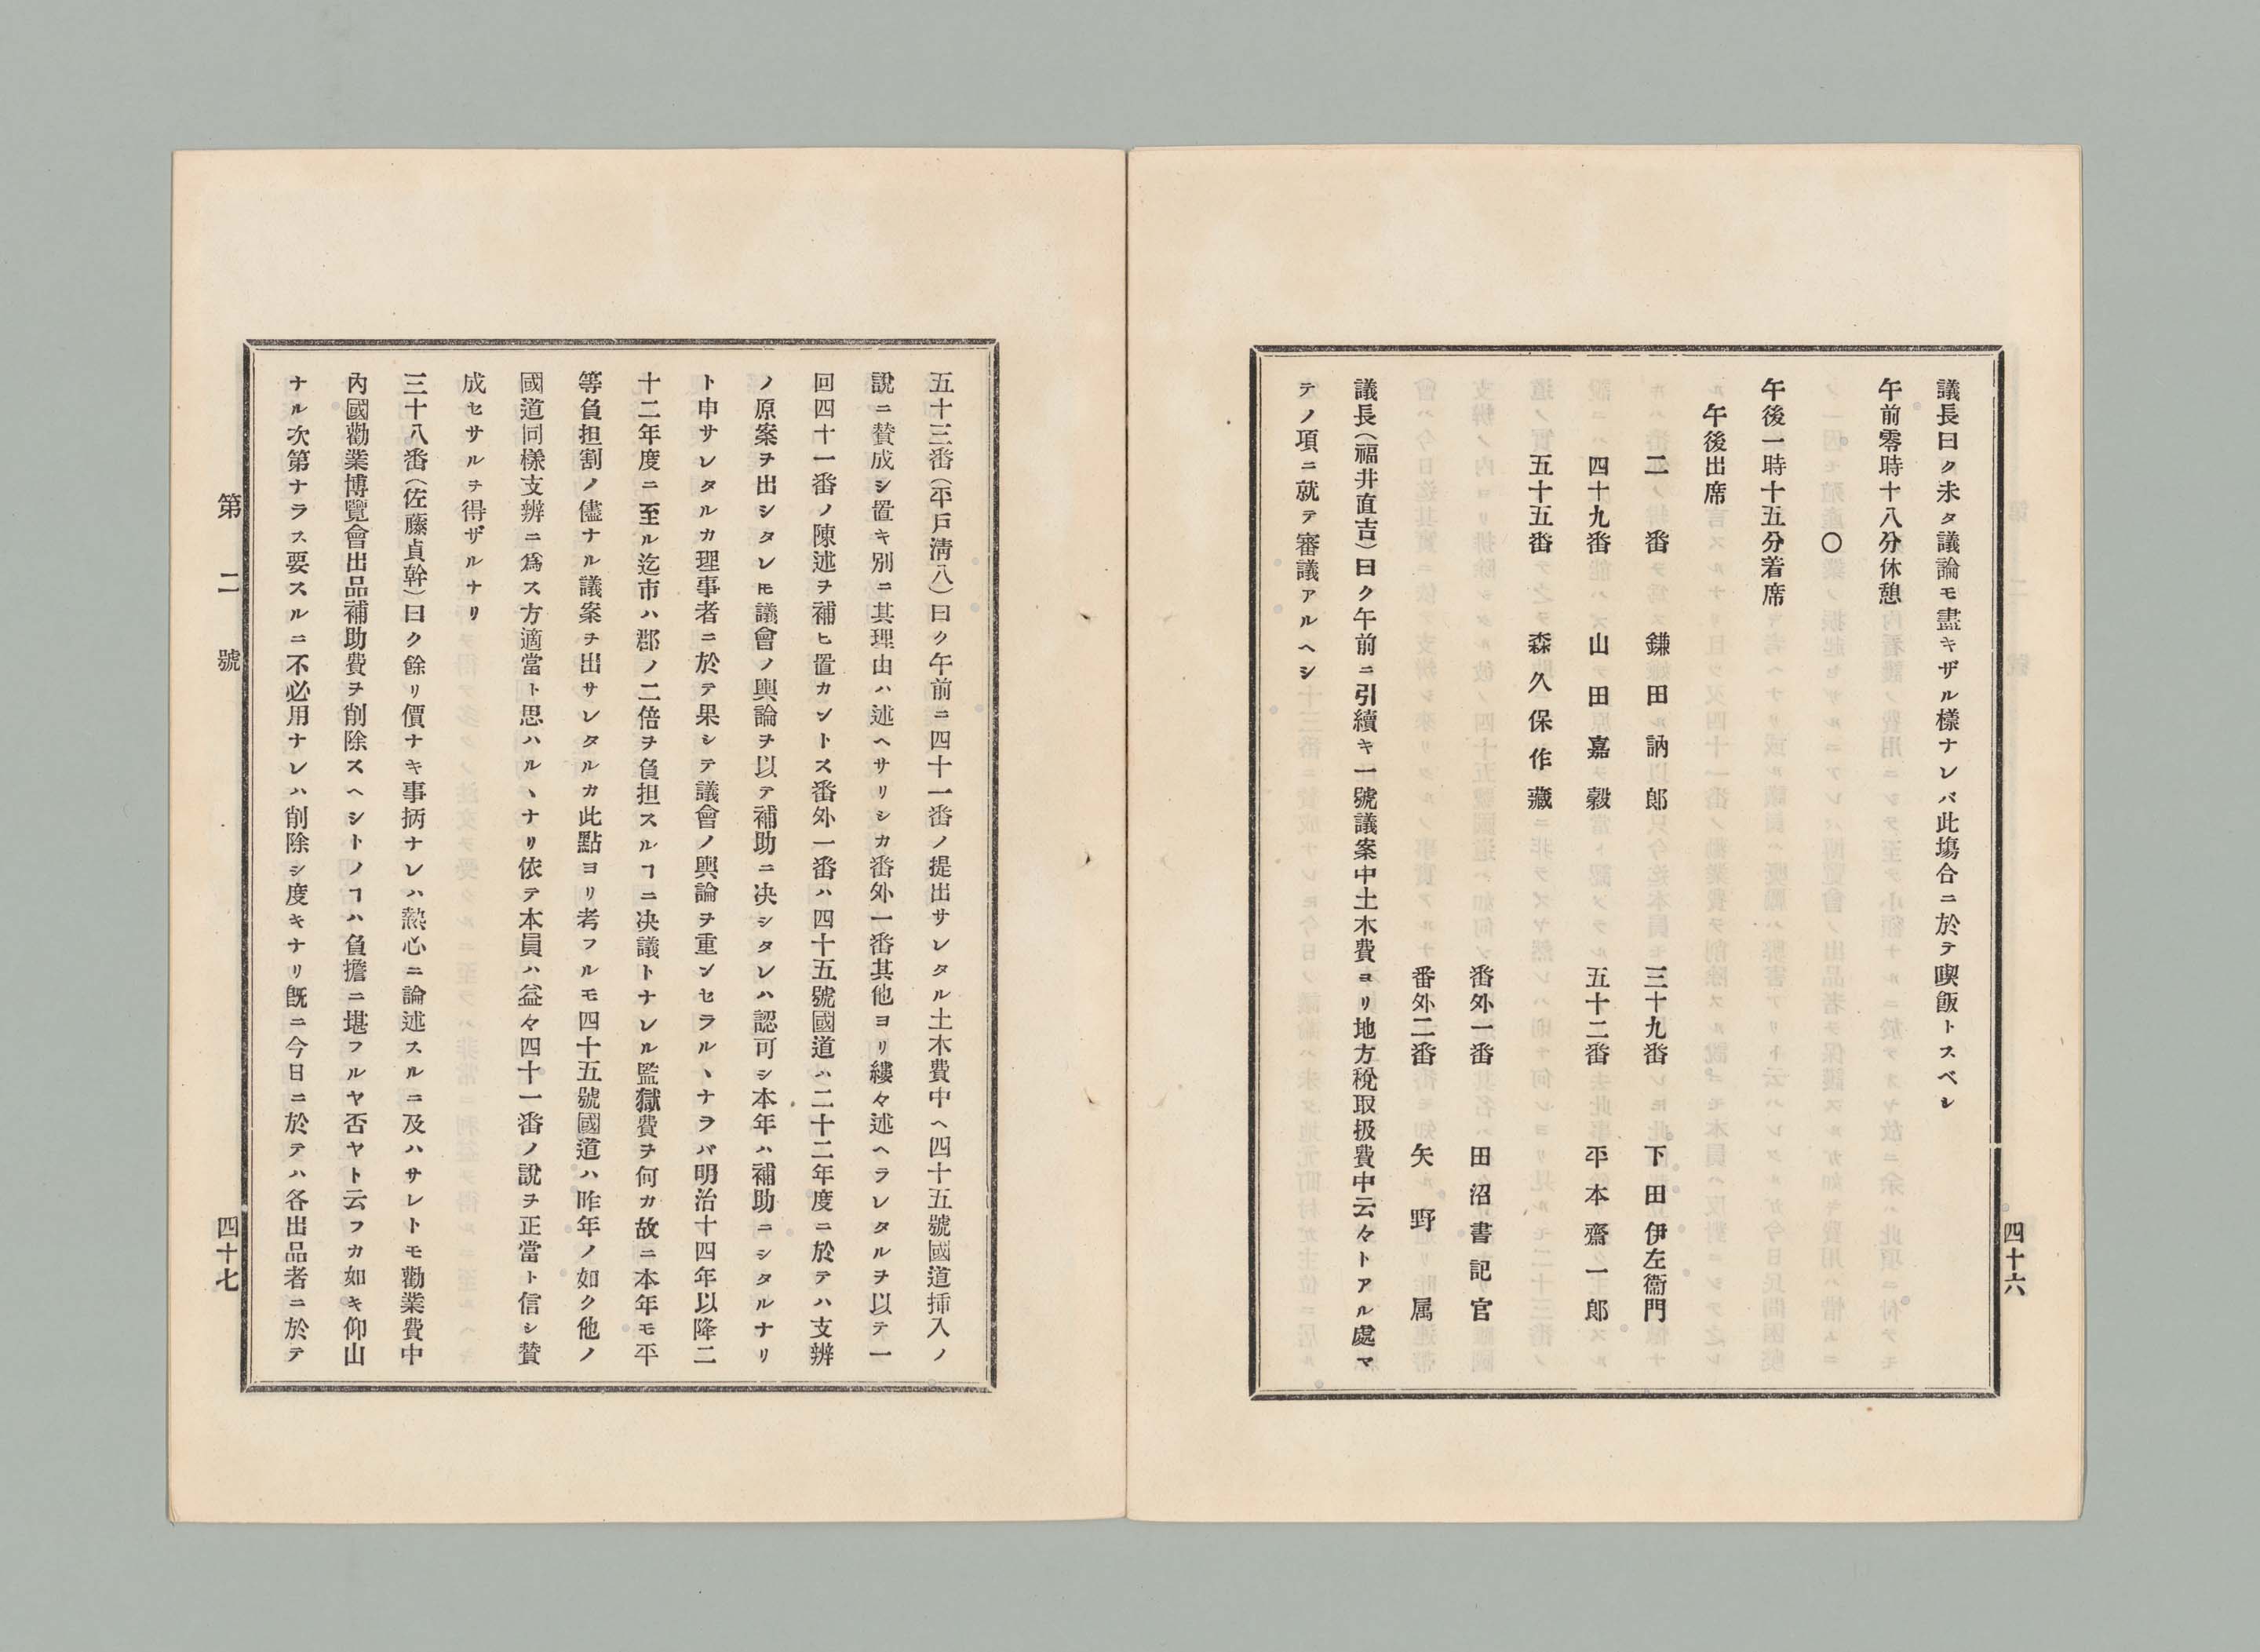 議長曰ク未タ議論モ盡キザル樣ナレバ此塲合ニ於テ喫飯トスベシ
午前零時十八分休憩
〇
午後一時十五分着席
午後出席
二番 鎌田訥郎 三十九番 下田伊左衞門
四十九番 山田嘉穀 五十二番 平本齋一郎
五十五番 森久保作藏
番外一番 田沼書記官
番外二番 矢野属
議長（福井直吉）曰ク午前ニ引續キ一號議案中土木費ヨリ地方稅取扱費中云々トアル處マ
テノ項ニ就テ審議アルヘシ
四十六
五十三番（平戸淸八）曰ク午前ニ四十一番ノ提出サレタル土木費中ヘ四十五號國道挿入ノ
說ニ賛成シ置キ別ニ其理由ハ述ヘサリシカ番外一番其他ヨリ縷々述ヘラレタルヲ以テ一
回四十一番ノ陳述ヲ補ヒ置カントス番外一番ハ四十五號國道ハ二十二年度ニ於テハ支辨
ノ原案ヲ出シタレ𪜈議會ノ輿論ヲ以テ補助ニ决シタレハ認可シ本年ハ補助ニシタルナリ
ト申サレタルカ理事者ニ於テ果シテ議會ノ輿論ヲ重ンセラルヽナラバ明治十四年以降二
十二年度ニ至ル迄市ハ郡ノ二倍ヲ負担スルヿニ决議トナレル監獄費ヲ何カ故ニ本年モ平
等負担割ノ儘ナル議案ヲ出サレタルカ此點ヨリ考フルモ四十五號國道ハ昨年ノ如ク他ノ
國道同樣支辨ニ爲ス方適當ト思ハルヽナリ依テ本員ハ益々四十一番ノ說ヲ正當ト信シ賛
成セサルヲ得ザルナリ
三十八番（佐藤貞幹）曰ク餘リ價ナキ事抦ナレハ熱心ニ論述スルニ及ハサレトモ勸業費中
內國勸業博覽會出品補助費ヲ削除スヘシトノヿハ負擔ニ堪フルヤ否ヤト云フカ如キ仰山
ナル次第ナラス要スルニ不必用ナレハ削除シ度キナリ旣ニ今日ニ於テハ各出品者ニ於テ
第二號
四十七